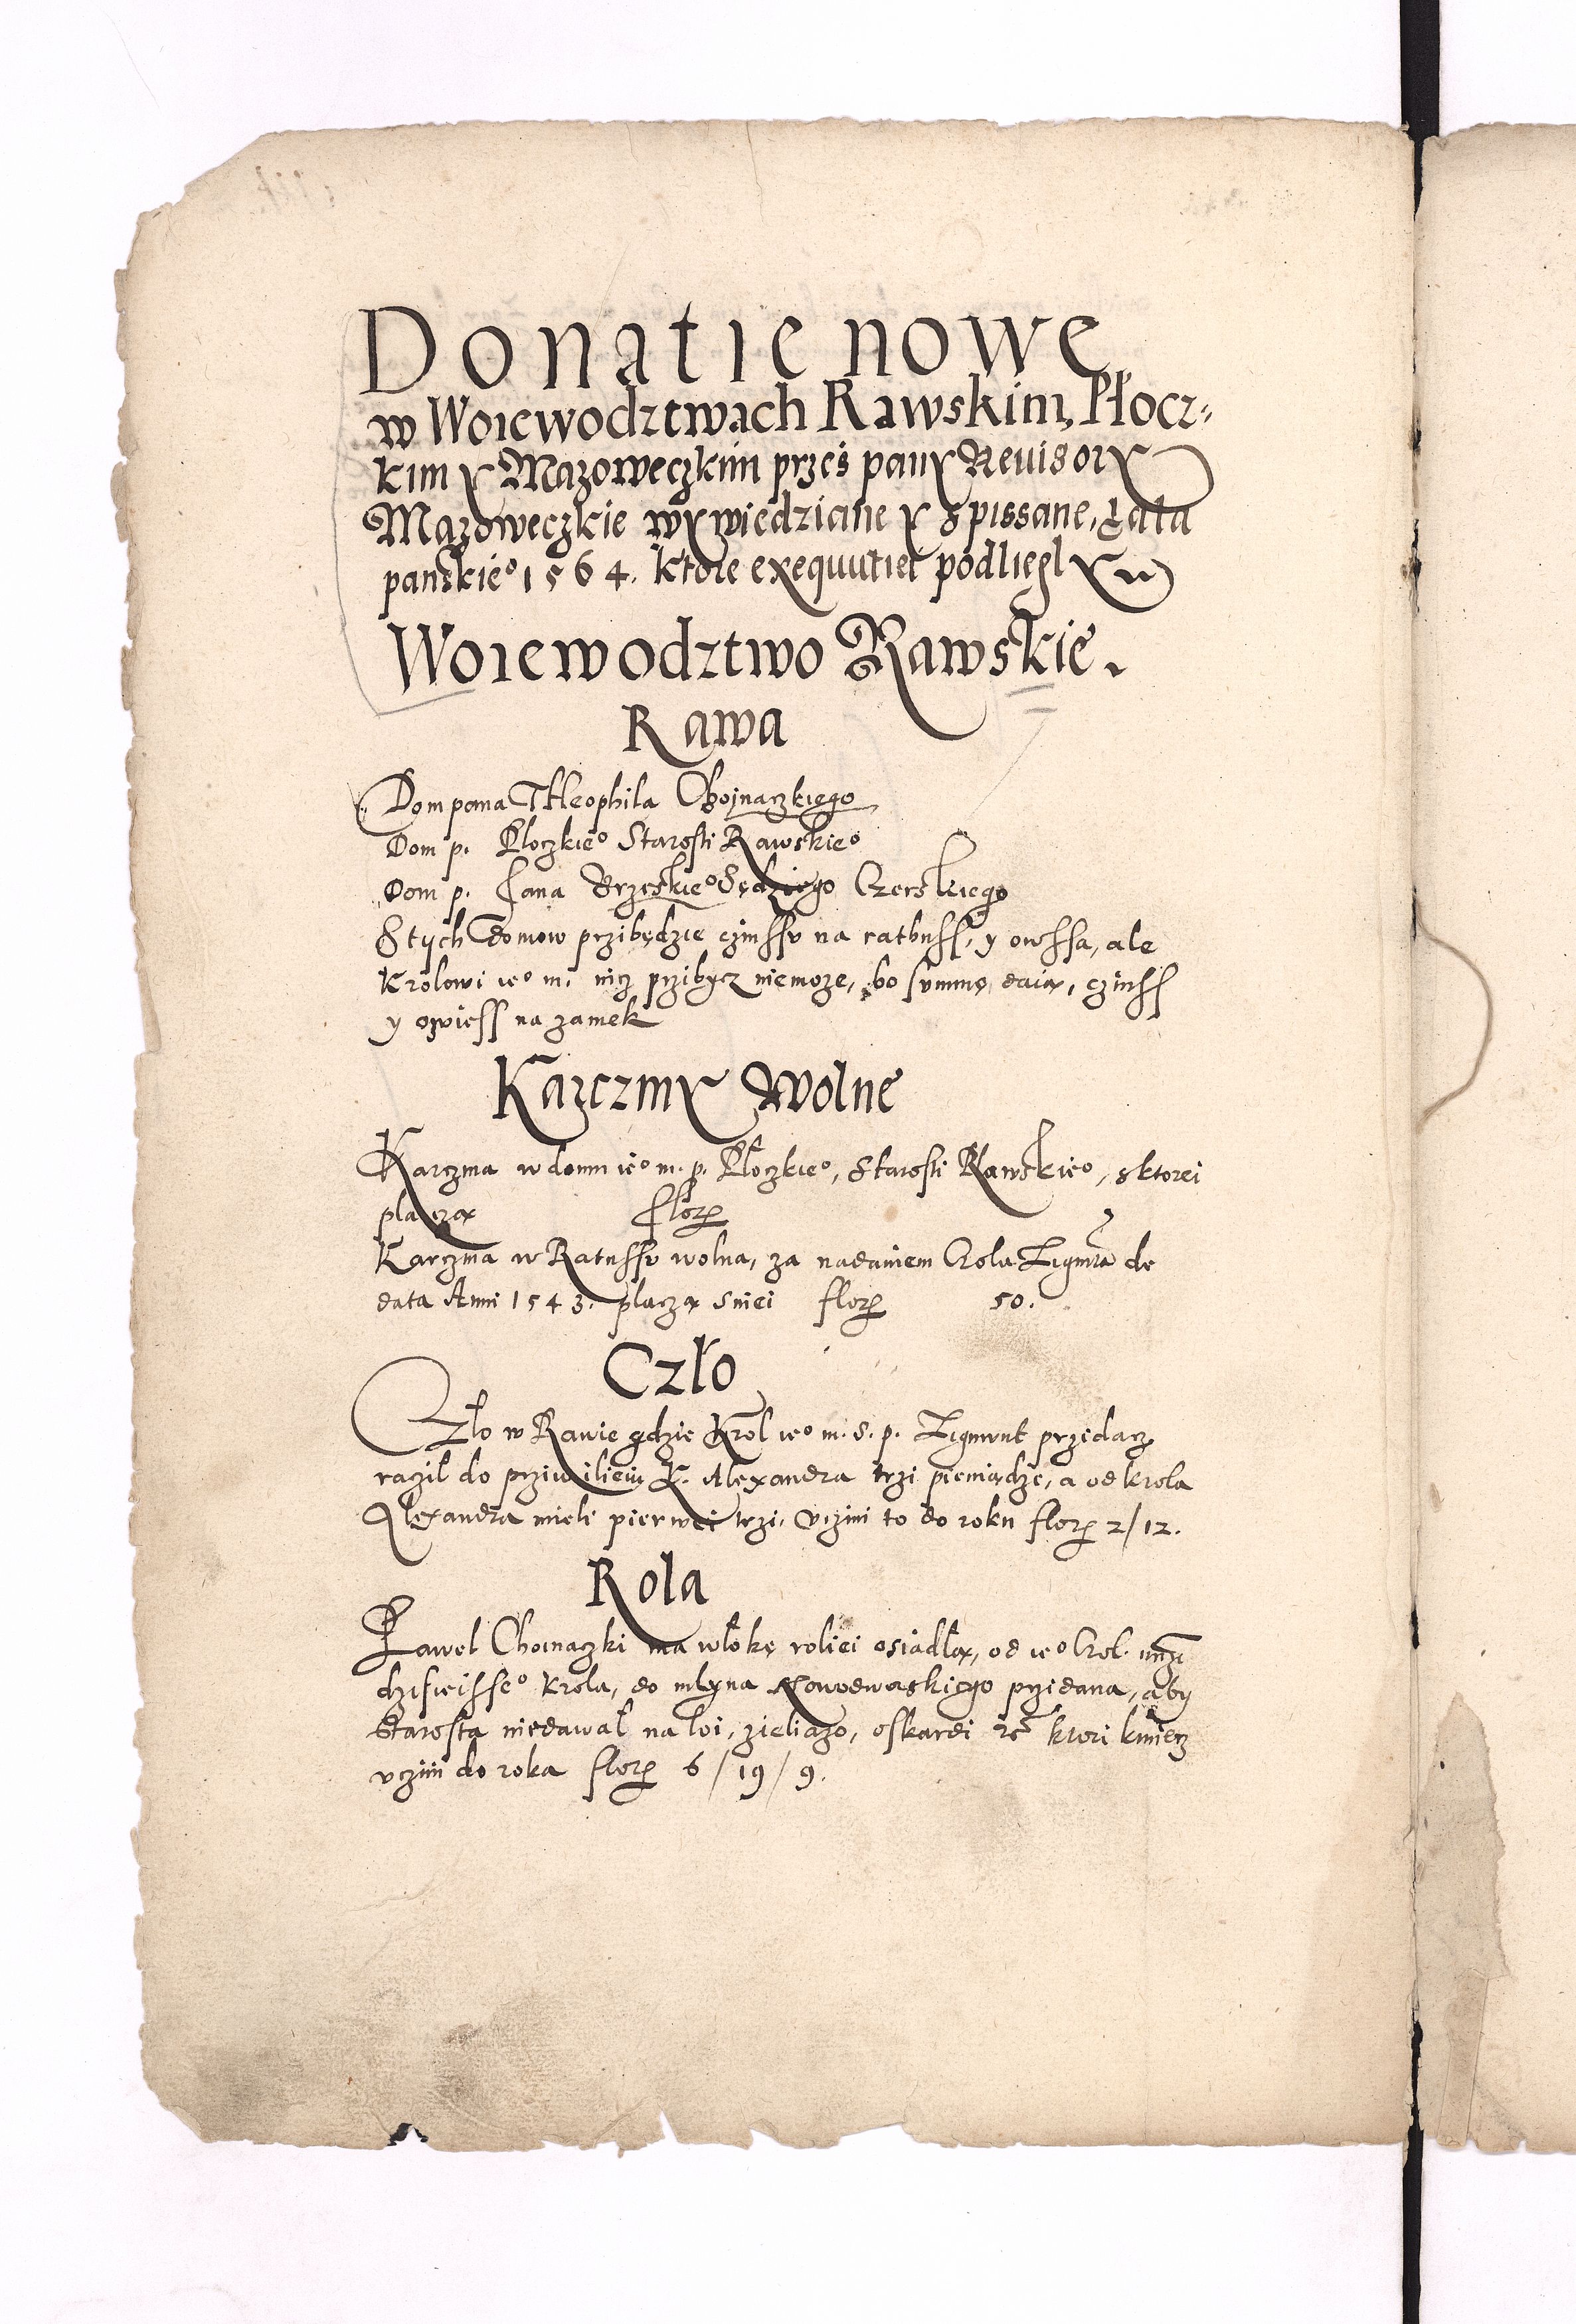 Donatie nowe
w Woiewodztwach Rawskim, Płocz-
kim y Mazoweczkim przes pany Reuisory
Mazoweczkie wywiedziane y spissane, Lata
panskieo 1564. ktore exequutiei podliegly
Woiewodztwo Rawskie.
Rawa
Dom pana Theophila Choinaczkiego
Dom p. Ploczkieo Starosti Rawskieo
Dom p. Jana Brzeskieo Sędziego Czerskiego
S tych domow przibędzie czinssu na ratuss, y owssa, ale
Krolowi ieo m. nicz przibycz niemoze, bo summę daią, czinss
y owiess na zamek
Karczmy Wolne
Karczma w domu ieo m. p. Płoczkieo, Starosti Rawskieo, s ktorei
placzą flor
Karczma w Ratussu wolna, za nadaniem Crola Zigmta de
data Anni 1543. placzą s niei flor 50.
Czło
Czlo w Rawie gdzie Krol ieo m. s. p. Zigmunt przidacz
raczil do priwilieiu K. Alexandra trzi pieniądze, a od krola
Alexandra mieli pierwei trzi, Uczini to do roku flor 2/12.
Rola
Pawel Choinaczki ma włokę roliei osiadłą, od ieo Crol.
dzisieisseo krola, do młyna przidana, aby
Starosta niedawał na loi, zieliazo, oskardi rc ktori kmiecz
uczini do roka flor 6/19/9.